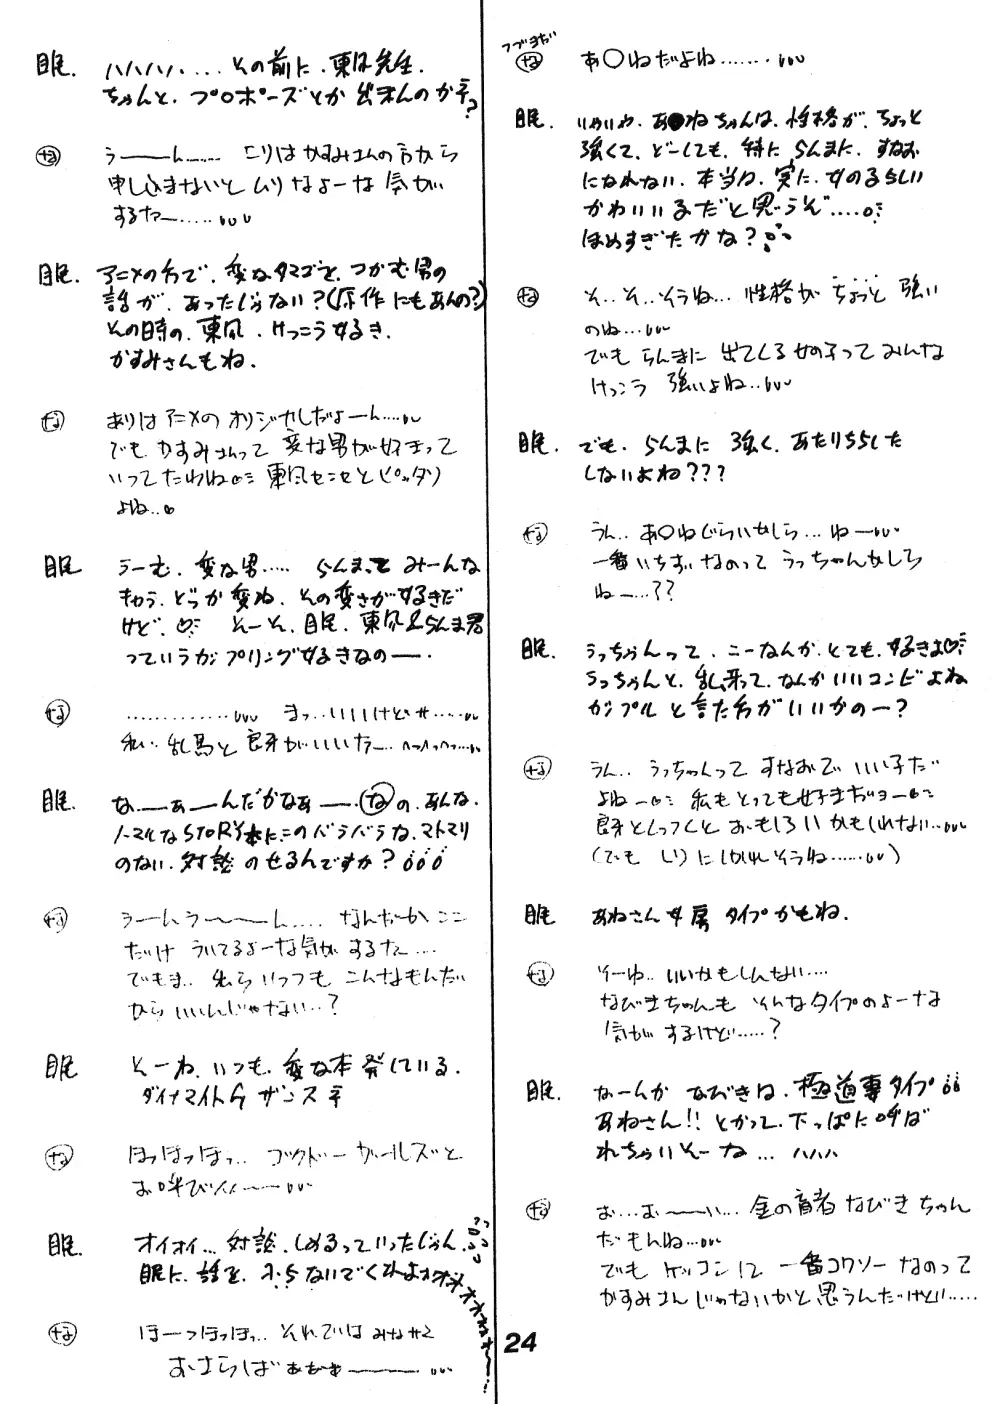 つづきだ
な あ〇ねだよね………
眠. いやいや、あ●ねちゃんは、性格が、ちょっと
強くて、どーしても、特に らんまに、すなお
になれない、本当は、実に、女のるらしい
かわいいるだと思うぞ‥‥
ほめすぎたかな?
な そ‥そ‥そうね… 性格が ちょっと 強い
のね…
でも らんまに 出てくる女の子って みんな
けっこう 強いよね‥
眠. でも、らんまに 強く、あたりちらした
しないよね???
な うん‥ あ〇ねぐらいかしら… ねー
一番いちずなのって うっちゃんかしら
ねー…??
眠. うっちゃんって、こーなんか、とても、好きよ♡
うっちゃんと、乱、来って、なんかいいコンビよね
カップル と言た方がいいかのー?
な うん‥ うっちゃんって すなおで いい子だ
よねー 私も とっても好きだョー
良牙とくっつくと おもしろいかもしれない‥
(でも しりに しかれそうね……)
眠 あねさん女房 タイプかもね.
な そーゆ‥ いいかもしんない‥‥
なびきちゃんも そんなタイプのよーな
気が するけど……?
眠. なーんか なびきは、極道専タイプ
あねさん!! とかって、下っぱに呼ば
れちゃいそーな … ハハハ
な お…おーーい… 金の亡者 なびきちゃん
だもんね…
でも ケッコン 一番コワソーなのって
かすみさんじゃないかと 思うんだけど……
眠. ハハハハ.... その前に、東風先生.
ちゃんと、プロポーズとか 出来んのかネ?
な うーーん…… こりは かすみさんの方から
申し込まないと ムリなよーな 気が
するなー……
眠. アニメの方で、変なタマゴを、つかむ男の
話が、あったじゃない?(原作にもあんの?)
その時の、東風、けっこう好き.
かすみさんもね.
な ありは アニメの オリジナルだよーん…
でも、かすみさんって 変な男が好きって
いってたわね 東風センセとピッタリ
よね‥
眠 うーむ、変な男…‥ らんまって みーんな
きゅう、どっか変ね、その変さが好きだ
けど、♡ そーそ、眠、東風&らんま君
っていうカップリング好きなのー.
な ………… まっ…いいけどサ……
私‥ 乱馬と 良牙がいいなー
眠. な—ぁーんだかなぁー—.なの、あんな、
ノーマルなSTORY本に、このバラバラな、マトマリ
のない、対談 のせるんですか?
な うーんうーーん…. なんだかここ
だけ ういてるよーな気が するなー…
でもま‥ 私ら いっつも こんなもんだ
から いいんじゃない‥?
眠 そーね、いつも、変な本 発している.
ダイナマイトG ザンスネ
な ほっほっほっ‥ ゴクドーガールズと
お呼びィィー
眠. オイオイ… 対談、しめるっていったじゃん.
眠に、話を、ふらないでくれよ
な ほーっほっほっ‥ それでは みなサマ
おさらばぁぁぁー
24